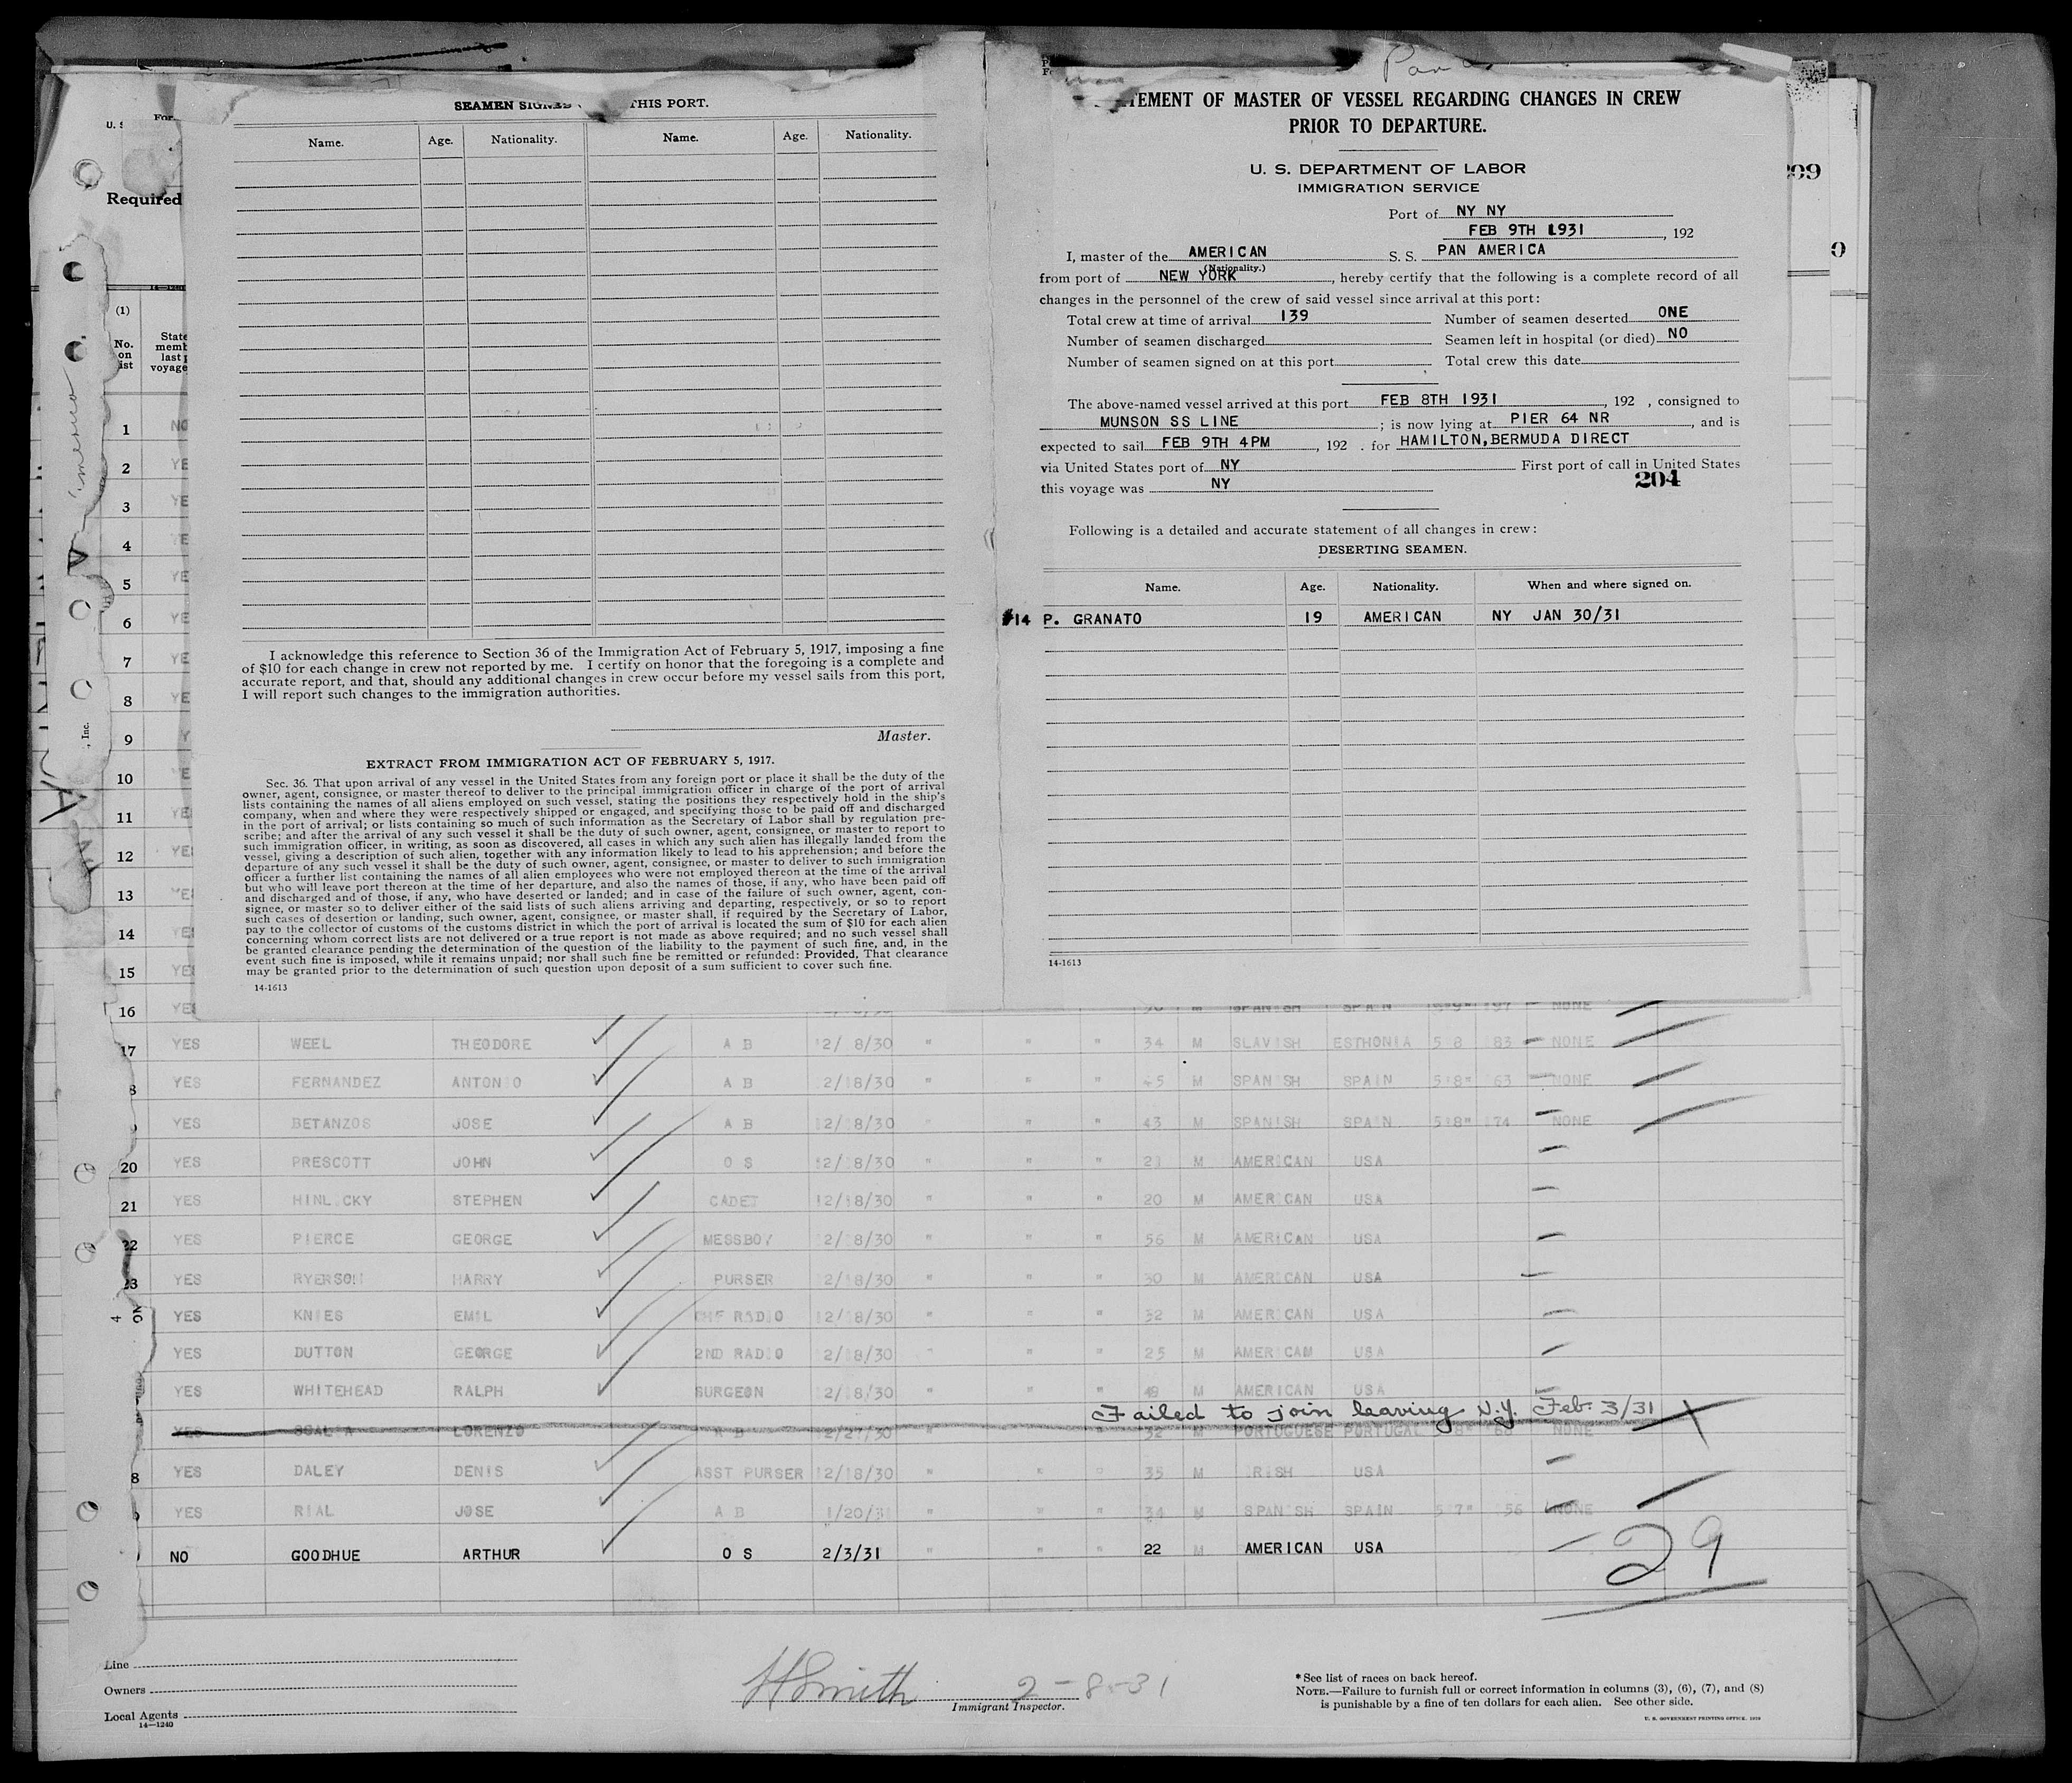 SEAMEN SIGNED THIS PORT.
Name. Age. Nationality. Name. Age. Nationality.
I acknowledge this reference to Section 36 of the Immigration Act of February 5, 1917, imposing a fine
of $10 for each change in crew not reported by me. I certify on honor that the foregoing is a complete and
accurate report, and that, should any additional changes in crew occur before my vessel sails from this port,
I will report such changes to the immigration authorities.
Master.
EXTRACT FROM IMMIGRATION ACT OF FEBRUARY 5, 1917.
Sec. 36. That upon arrival of any vessel in the United States from any foreign port or place it shall be the duty of the
owner, agent, consignee, or master thereof to deliver to the principal immigration officer in charge of the port of arrival
lists containing the names of all aliens employed on such vessel, stating the positions they respectively hold in the ship's
company, when and where they were respectively shipped or engaged, and specifying those to be paid off and discharged
in the port of arrival; or lists containing so much of such information as the Secretary of Labor shall by regulation pre-
scribe; and after the arrival of any such vessel it shall be the duty of such owner, agent, consignee, or master to report to
such immigration officer, in writing, as soon as discovered, all cases in which any such alien has illegally landed from the
vessel, giving a description of such alien, together with any information likely to lead to his apprehension; and before the
departure of any such vessel it shall be the duty of such owner, agent, consignee, or master to deliver to such immigration
officer a further list containing the names of all alien employees who were not employed thereon at the time of the arrival
but who will leave port thereon at the time of her departure, and also the names of those, if any, who have been paid off
and discharged and of those, if any, who have deserted or landed; and in case of the failure of such owner, agent, con-
signee, or master so to deliver either of the said lists of such aliens arriving and departing, respectively, or so to report
such cases of desertion or landing, such owner, agent, consignee, or master shall, if required by the Secretary of Labor,
pay to the collector of customs of the customs district in which the port of arrival is located the sum of $10 for each alien
concerning whom correct lists are not delivered or a true report is not made as above required; and no such vessel shall
be granted clearance pending the determination of the question of the liability to the payment of such fine, and, in the
event such fine is imposed, while it remains unpaid; nor shall such fine be remitted or refunded: Provided, That clearance
may be granted prior to the determination of such question upon deposit of a sum sufficient to cover such fine.
14-1613
TEMENT OF MASTER OF VESSEL REGARDING CHANGES IN CREW
PRIOR TO DEPARTURE.
U. S. DEPARTMENT OF LABOR
IMMIGRATION SERVICE
Port of NY NY
FEB 9TH 1931, 192
I, master of the AMERICAN S. S. PAN AMERICA
(Nationality.)
from port of NEW YORK, hereby certify that the following is a complete record of all
changes in the personnel of the crew of said vessel since arrival at this port:
Total crew at time of arrival 139 Number of seamen deserted ONE
Number of seamen discharged Seamen left in hospital (or died) NO
Number of seamen signed on at this port Total crew this date
The above-named vessel arrived at this port FEB 8TH 1931, 192 , consigned to
MUNSON SS LINE ; is now lying at PIER 64 NR, and is
expected to sail FEB 9TH 4PM, 192 . for HAMILTON, BERMUDA DIRECT
via United States port of NY First port of call in United States
this voyage was NY
204
Following is a detailed and accurate statement of all changes in crew:
DESERTING SEAMEN.
Name. Age. Nationality. When and where signed on.
#14 P. GRANATO 19 AMERICAN NY JAN 30/31
14-1613
Required
(1)
No. on list
State
memb
last
voyage
1
2 YE
3 YE
4
5 YE
6 YE
7 YE
8 YE
9 Y
10
11 YE
12 YE
13
14 YE
15 YE
16 YE NONE
17 YES WEEL THEODORE A B 12/ 8/30 " " " 34 M SLAVISH ESTHONIA 5 8 83 NONE
8 YES FERNANDEZ ANTONIO A B 2/18/30 " " " 45 M SPANISH SPAIN 5 8" 63 NONE
YES BETANZOS JOSE A B 2/18/30 " " 43 M SPANISH SPAIN 5 8" 74 NONE
20 YES PRESCOTT JOHN O S 12/18/30 " " " 21 M AMERICAN USA
21 YES HINL CKY STEPHEN CADET 12/18/30 " " " 20 M AMERICAN USA
22 YES PIERCE GEORGE MESSBOY 2/18/30 " " " 56 M AMERICAN USA
23 YES RYERSON HARRY PURSER 2/18/30 " " " 30 M AMERICAN USA
4 YES KNIES EMIL CHF RADIO 2/18/30 " " " 32 M AMERICAN USA
YES DUTTON GEORGE 2ND RADIO 2/18/30 " " " 25 M AMERICAN USA
YES WHITEHEAD RALPH SURGEON 2/18/30 " " " 49 M AMERICAN USA
Failed to join leaving N.Y. Feb. 3/31
YES LORENZO A B 2/27/30 " 32 M PORTUGUESE PORTUGAL NONE
8 YES DALEY DENIS ASST PURSER 12/18/30 " " " 35 M IRISH USA
YES RIAL JOSE A B 1/20/31 " " " 34 M SPANISH SPAIN 5 7" 56 NONE
NO GOODHUE ARTHUR O S 2/3/31 " " " 22 M AMERICAN USA
29
Line
Owners
Local Agents
14—1240
H Smith 2-8-31
Immigrant Inspector.
* See list of races on back hereof.
NOTE.—Failure to furnish full or correct information in columns (3), (6), (7), and (8)
is punishable by a fine of ten dollars for each alien. See other side.
U. S. GOVERNMENT PRINTING OFFICE. 1929